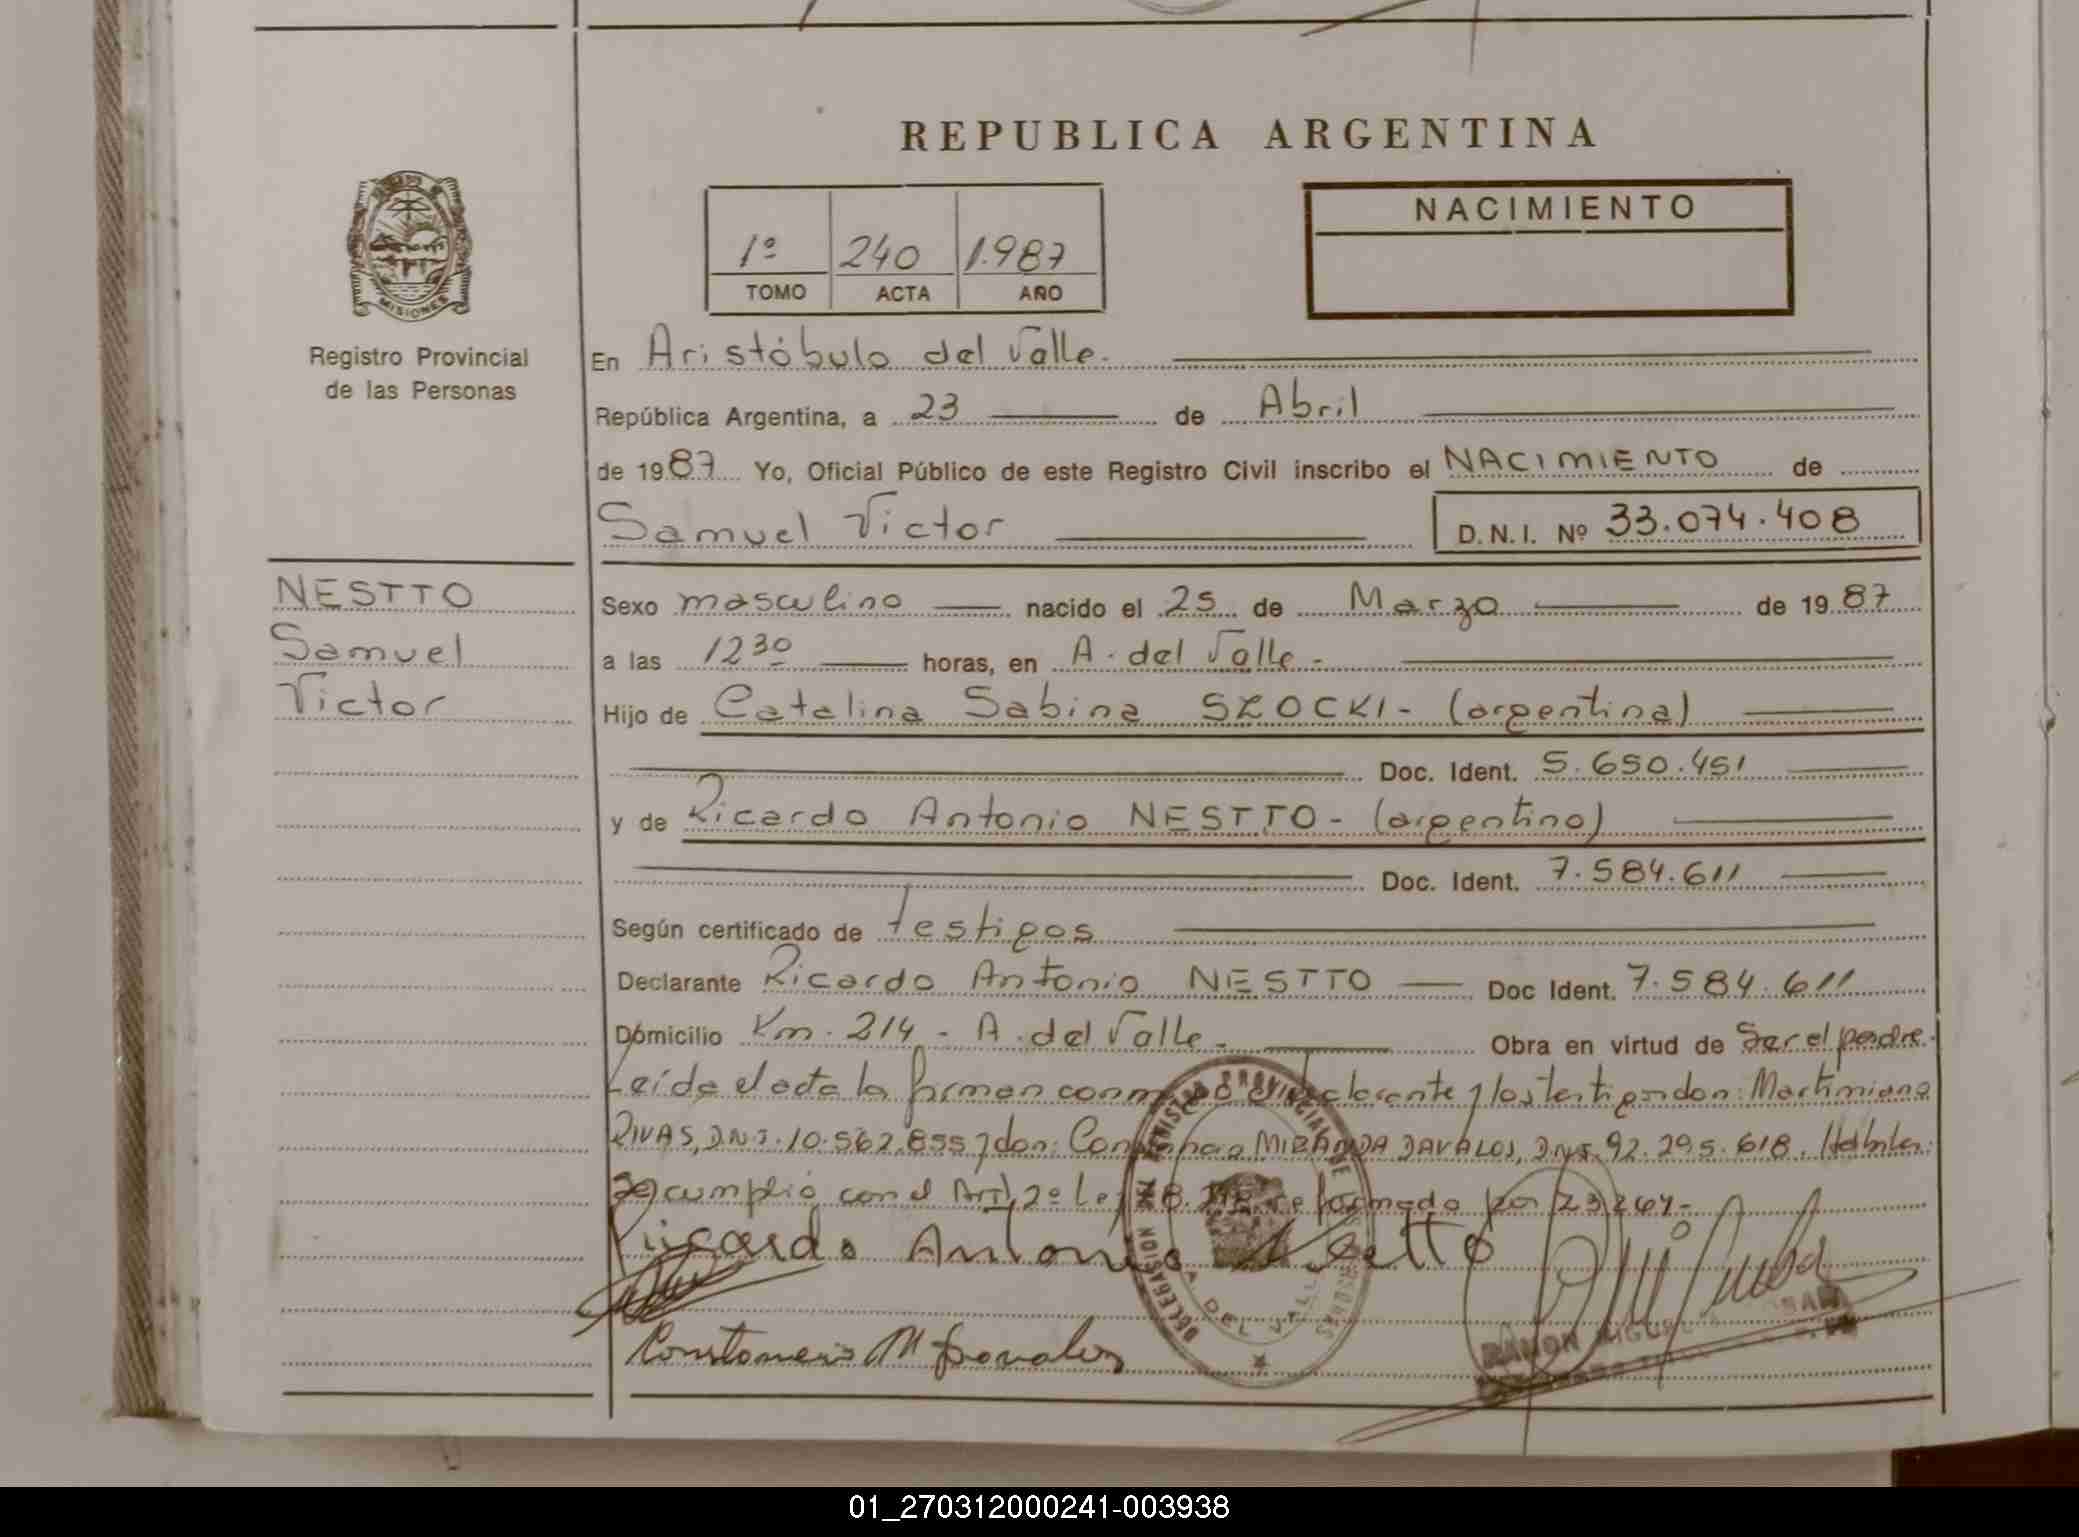 REPUBLICA ARGENTINA
MISIONES
Registro Provincial
de las Personas
1º 240 1.987
TOMO ACTA AÑO
NACIMIENTO
En Aristóbulo del Valle.
República Argentina, a 23 de Abril
de 1987 Yo, Oficial Público de este Registro Civil inscribo el NACIMIENTO de
Samuel Victor
D.N.I. Nº 33.074.408
NESTTO
Samuel
Victor
Sexo masculino nacido el 25 de Marzo de 1987
a las 12 30 horas, en A. del Valle -
Hijo de Catalina Sabina SZOCKI - (argentina)
Doc. Ident. 5.650.451
y de Ricardo Antonio NESTTO - (argentino)
Doc. Ident. 7.584.611
Según certificado de testigos
Declarante Ricardo Antonio NESTTO Doc Ident. 7.584.611
Domicilio Km. 214 - A. del Valle - Obra en virtud de Ser el padre.
Leída el acta la firman conmigo el declarante y los testigos don: Martimiano
RIVAS, D.N.I. 10.562.855 y don: MIRANDA DAVALOS, D.N.I. 92.295.618.
Se cumplió con el Art. 2º Ley reformado por 23.264-
Ricardo Antonio Nestto
DELEGACION DEL REGISTRO PROVINCIAL DE LAS PERSONAS
A. DEL VALLE
RAMON MIGUEL
01_270312000241-003938